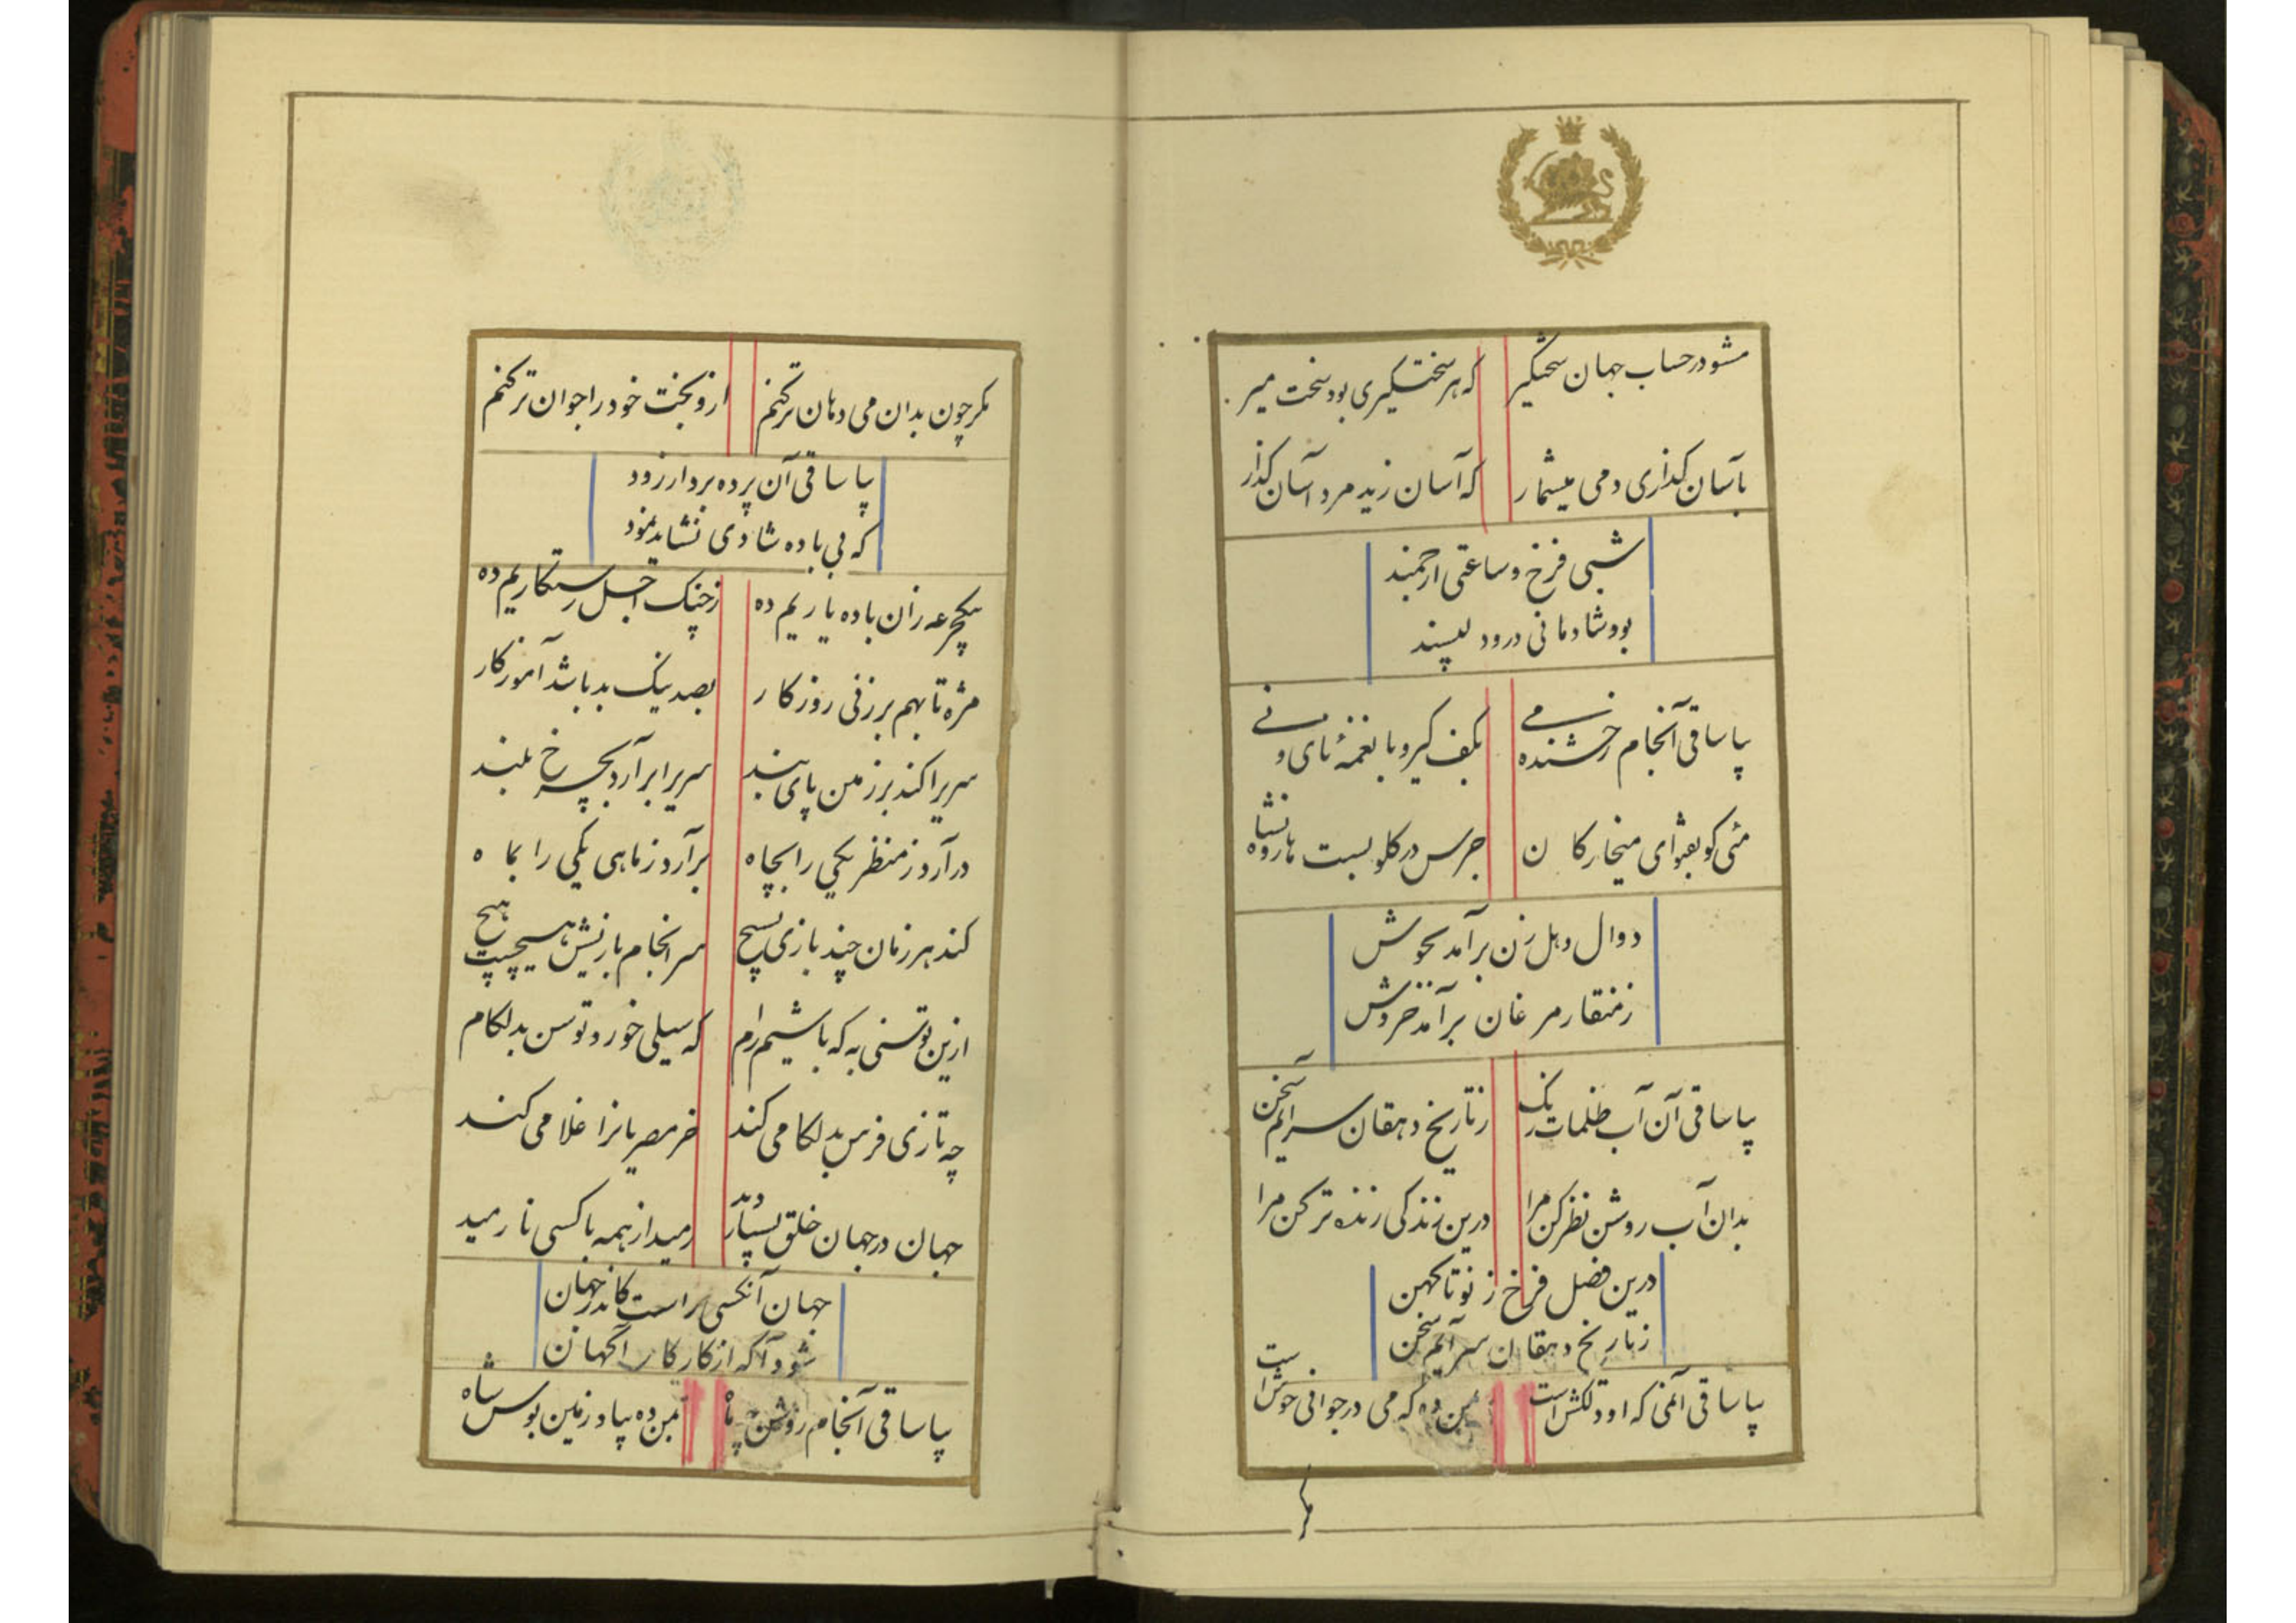 مشو در حساب جهان سختگیر که هر سختگیری بود سخت میر
بآسان گذاری دمی میشمار که آسان زید مرد آسان گذار
شبی فرخ و ساعتی ارجمند
بود شادمانی درو دلپسند
بیا ساقی آنجام رخشنده می بکف گیر و با نغمهٔ نای و نی
مئی کو بفتوای میخوارکان
دوال دهل زن برآمد بجوش
ز منقار مرغان برآمد خروش
بیا ساقی آن آب ظلمات رنک ز تاریخ دهقان سرایم سخن
بدان آب روشن نظر کن مرا درین زندگی زنده‌تر کن مرا
درین فصل فرخ ز نو تا کهن
ز تاریخ دهقان سرایم سخن
بیا ساقی آنمی که او دلکش است بمن ده که می در جوانی خوش است
مگر چون بدان می دهان تر کنم ازو بخت خود را جوان‌تر کنم
بیا ساقی آن پرده بردار زود
که بی باده شادی نشاید نمود
بیکجرعه زان باده یاریم ده ز چنک اجل رستکاریم ده
مژه تا بهم برزنی روزکار بصد نیک و بد باشد آموزکار
سریرا کند بر زمین پای بند سریرا برآرد بچرخ بلند
درآرد ز منظر یکی را بچاه برآرد ز ماهی یکی را بماه
کند هر زمان چند بازی بسیج سرانجام بازیش هیچست هیچ
ازین توسنی به که باشیم رام که سیلی خورد توسن بدلکام
چه تازی فرس بدلکامی کند خر مصریانرا غلامی کند
جهان در جهان خلق بسیار دید رمید از همه با کسی نارمید
جهان آنکسی راست کاندر جهان
شود آکه از کار کار آکهان
بیا ساقی آنجام روشن چو ماه بمن ده بیاد زمین بوس شاه